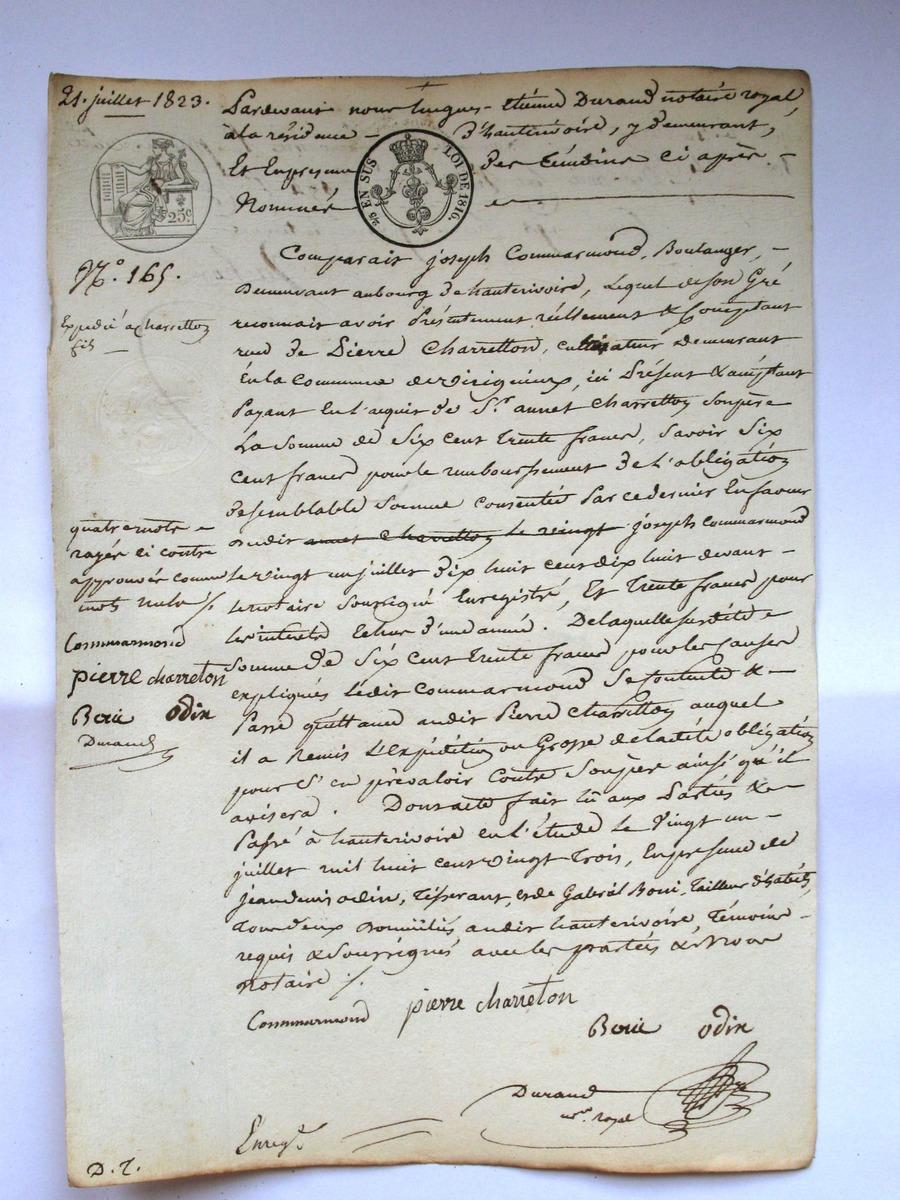 21. juillet 1823.
25c
5/2 EN SUS LOI DE 1816.
N.o 165.
Expedié a Charretton
fils
Pardevant nous hugues-étiénne Durand notaire royal,
à la résidence d'hauterivoire, y demeurant,
Et En presence des témoins ci après
Nommés
Comparait joseph Commarmond, Boulanger,
Demeurant au bourg de hauterivoire, Lequel de son Gré
reconnait avoir Présentement réellement & Comptant
reçu de Pierre Charretton, cultivateur demeurant
En la Commune de viriqueux, ici Présent & acceptant
Payant En l'acquit de Sr. annet Charretton son père
La Somme de Six Cent trente francs, Savoir Six
Cent francs pour le remboursement de L'obligation
de semblable Somme consentie Par ce dernier En faveur
audit annet Charretton le vingt joseph Commarmond
le vingt un juillet dix huit cent dix huit devant
le notaire soussigné Enregistré, Et trente francs pour
les interets Echus d'une année. De laquelle susdite
Somme de Six Cent trente francs pour les Causes
expliqués Ledit Commarmond Se Contente &
Passe quittance audit Pierre Charretton auquel
il a Remis L'Expédition ou Grosse de l'acte d'obligation
pour S'en prévaloir contre Son père ainsi qu'il
avisera. Dont acte fait lû aux Parties &
Passé à hauterivoire en l'étude le Vingt un
juillet mil huit cent vingt trois, En presence de
jean denis odin, Tisserant, et de Gabriél Boui, tailleur d'habits,
tous deux domiciliés audit hauterivoire, témoins
requis & Soussignés avec les parties & Nous
notaire ./.
quatre mots
rayés ci contre
approuvés comme
mots nuls ./.
Commarmond
pierre charreton
Boui odin
Durand
Commarmond pierre charreton
Boui odin
Durand
not. royal
Enreg.é
D. T.